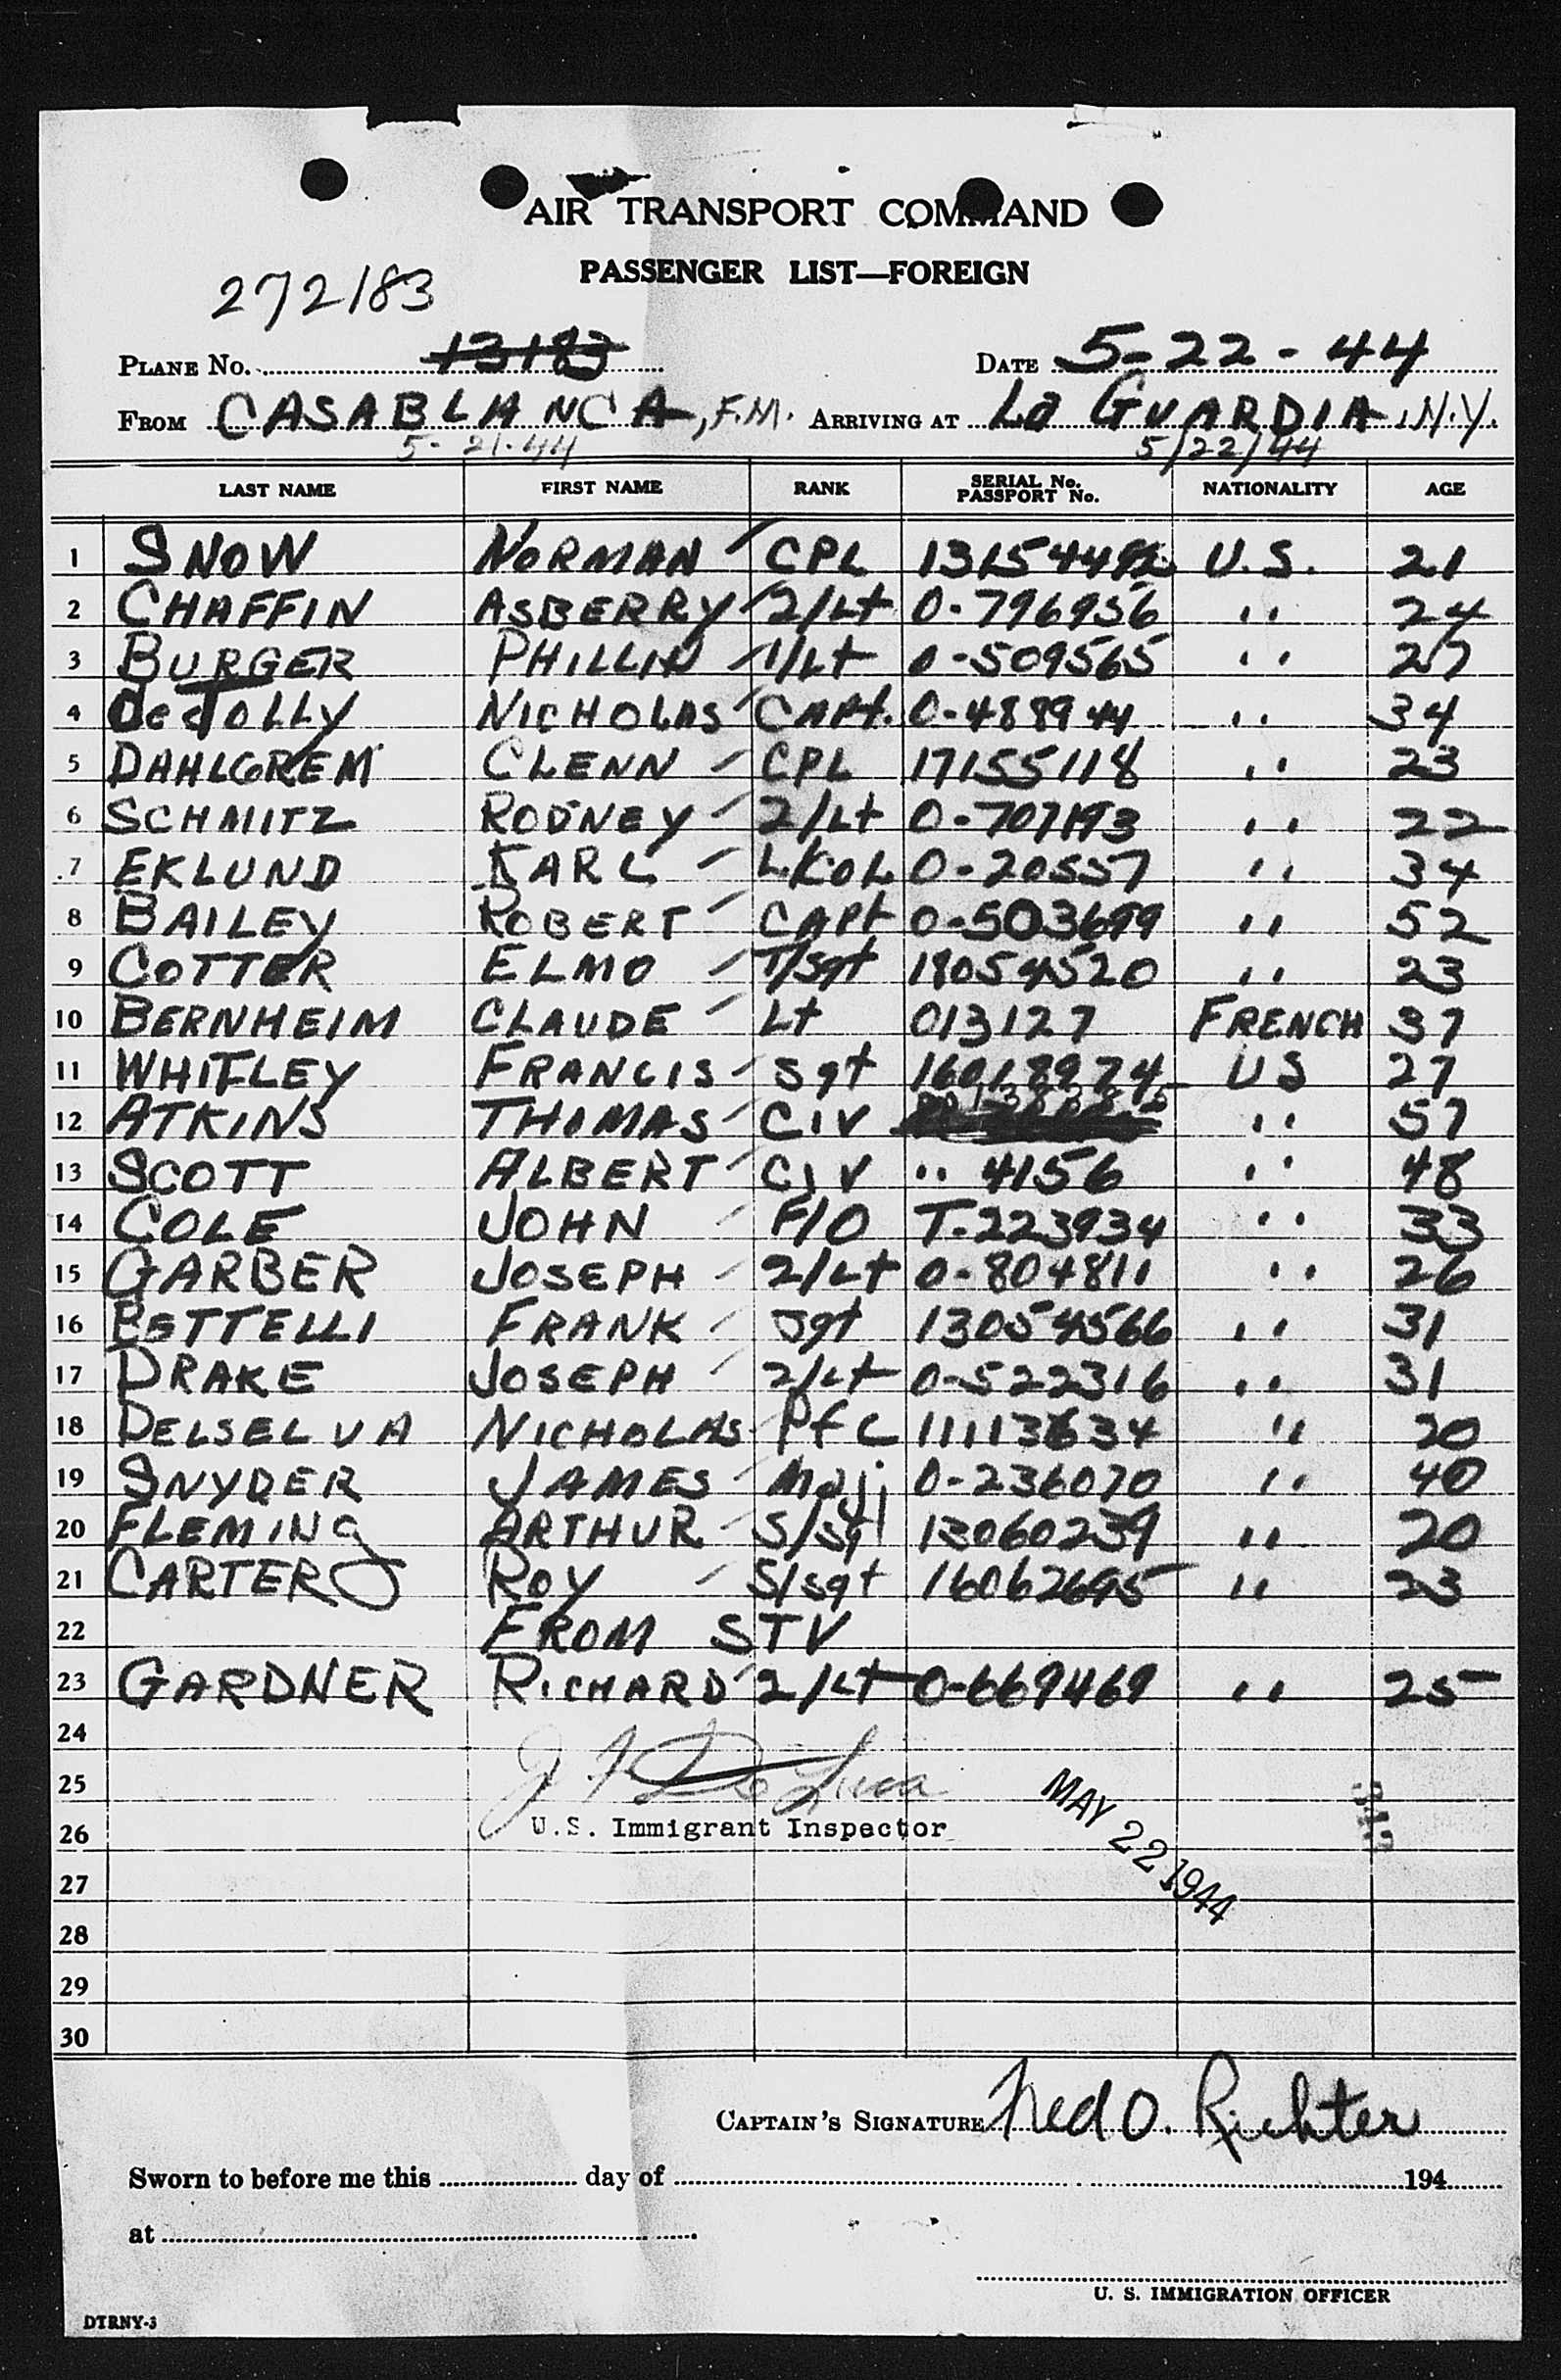 AIR TRANSPORT COMMAND
PASSENGER LIST—FOREIGN
272183
PLANE No. 13183 DATE 5-22-44
FROM CASABLANCA, F.M. ARRIVING AT La GUARDIA, N.Y.
5-21-44 5/22/44
LAST NAME FIRST NAME RANK SERIAL No. PASSPORT No. NATIONALITY AGE
1 SNOW NORMAN CPL U.S. 21
2 CHAFFIN ASBERRY 2/Lt 0-796956 " 24
3 BURGER PHILLIP 1/Lt 0-509565 " 27
4 DeJOLLY NICHOLAS CAPt. 0-488944 " 34
5 DAHLGREM GLENN CPL 17155118 " 23
6 SCHMITZ RODNEY 2/Lt 0-707193 " 22
7 EKLUND KARL Lt COL 0-20557 " 34
8 BAILEY ROBERT CAPt 0-503699 " 52
9 COTTER ELMO T/Sgt 18054520 " 23
10 BERNHEIM CLAUDE Lt 013127 FRENCH 37
11 WHITLEY FRANCIS Sgt 16018974 US 27
12 ATKINS THOMAS CIV " 57
13 SCOTT ALBERT CIV " 4156 " 48
14 COLE JOHN F/O T-223934 " 33
15 GARBER JOSEPH 2/Lt 0-804811 " 26
16 BETTELLI FRANK Sgt 13054566 " 31
17 DRAKE JOSEPH 2/Lt 0-522316 " 31
18 DELSELVA NICHOLAS Pfc 11113634 " 20
19 SNYDER JAMES Maj 0-236070 " 40
20 FLEMING ARTHUR S/Sgt 13060239 " 20
21 CARTER ROY S/Sgt 16062695 " 23
22 FROM STV
23 GARDNER RICHARD 2/Lt 0-669469 " 25
24
25 J F De Luca
26 U.S. Immigrant Inspector MAY 22 1944
27
28
29
30
CAPTAIN'S SIGNATURE Fred O. Richter
Sworn to before me this day of 194
at
U. S. IMMIGRATION OFFICER
DTRNY-3